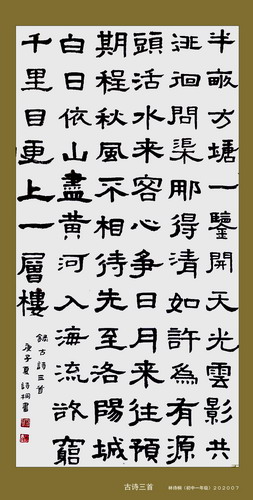 半畝方塘一鑒開天光雲影共
徘徊問渠那得清如許為有源
頭活水來客心爭日月來往預
期程秋風不相待先至洛陽城
白日依山盡黃河入海流欲窮
千里目更上一層樓
錄古詩三首
庚子夏詩桐書
古诗三首
林诗桐（初中一年级）202007